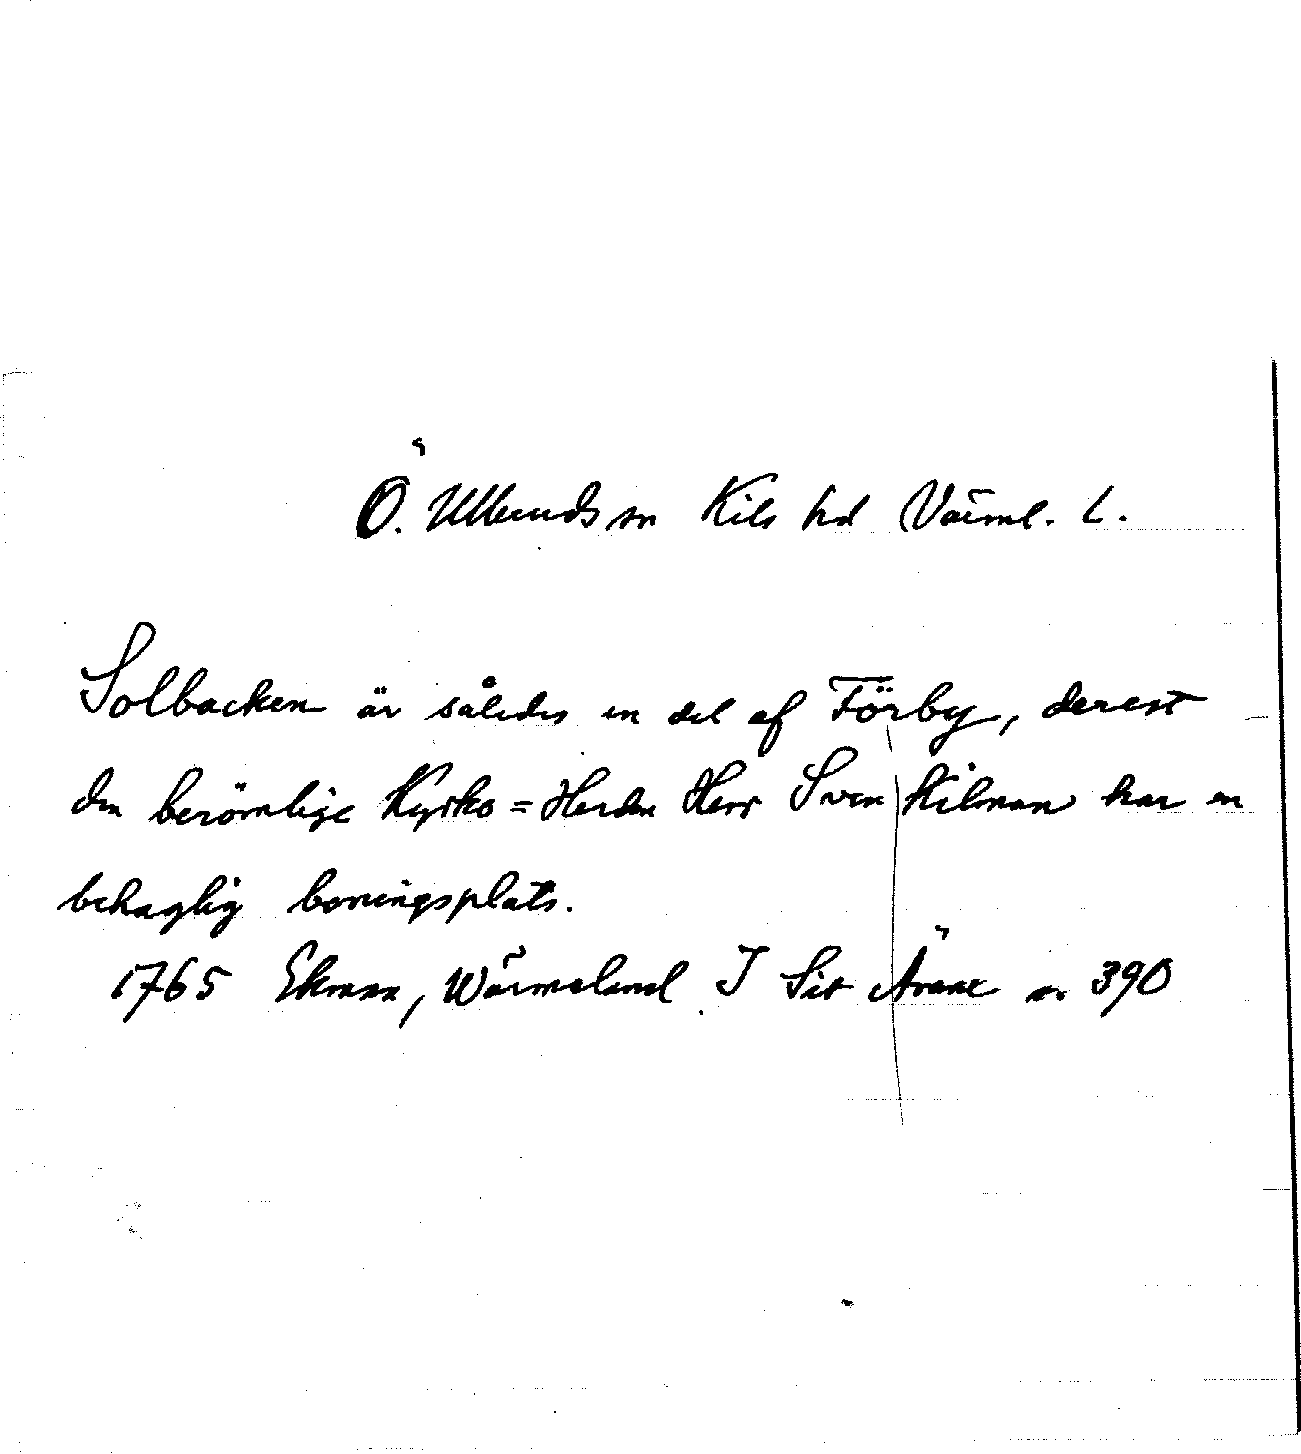 Ö. Ulleruds sn Kils hd Värml. L.
Solbacken är således en del af Förby, derest
den berömlige Kyrko=Herden Herr Sven Kilman har en
behaglig boningsplats.
1765 Ekman, Wärmeland I Sit Ämne s. 390